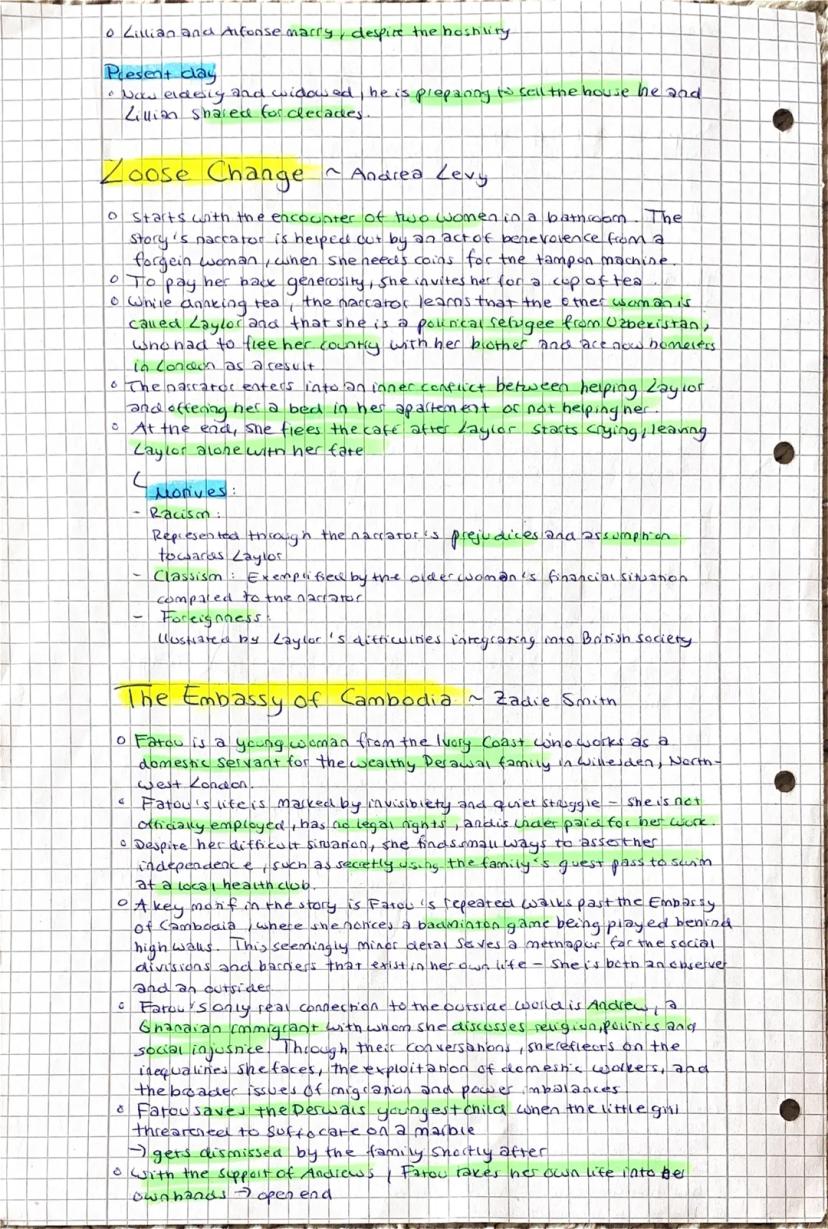 o Lillian and Alfonse marry, despite the hostility
Present day
o Now elderly and widowed, he is preparing to sell the house he and
Lillian shared for decades.
Loose Change ~ Andrea Levy
o Starts with the encounter of two women in a bathroom. The
story's narrator is helped out by an act of benevolence from a
forgein woman, when she needs coins for the tampon machine.
o To pay her back generosity, she invites her for a cup of tea.
o While drinking tea, the narrator learns that the other woman is
called Laylor and that she is a political refugee from Uzbekistan,
who had to flee her country with her brother and are now homeless
in London as a result.
o The narrator enters into an inner conflict between helping Laylor
and offering her a bed in her apartement or not helping her.
o At the end, she flees the café after Laylor starts crying, leaving
Laylor alone with her fate
Motives:
- Racism:
Represented through the narrator's prejudices and assumption
towards Laylor
- Classism: Exemplified by the older woman's financial situation
compared to the narrator
- Foreignness:
Illustrated by Laylor's difficulties integrating into British society
The Embassy of Cambodia ~ Zadie Smith
o Fatou is a young woman from the Ivory Coast who works as a
domestic servant for the wealthy Derawal family in Willesden, North-
west London.
o Fatou's life is marked by invisibiety and quiet struggle – she is not
officially employed, has no legal rights, and is under paid for her work.
o Despite her difficult situation, she finds small ways to assert her
independence, such as secretly using the family's guest pass to swim
at a local health club.
o A key motif in the story is Fatou's repeated walks past the Embassy
of Cambodia, where she notices a badminton game being played behind
high walls. This seemingly minor detail serves a methapor for the social
divisions and barriers that exist in her own life – she is both an observer
and an outsider
o Fatou's only real connection to the outside world is Andrew, a
Ghanaian immigrant with whom she discusses religion, politics and
social injustice. Through their conversations, she reflects on the
inequalities she faces, the exploitation of domestic workers, and
the broader issues of migration and power imbalances
o Fatou saves the Derwals youngest child when the little girl
threatened to suffocate on a marble
→ gets dismissed by the family shortly after
o With the support of Andrews, Fatou takes her own life into her
own hands → open end